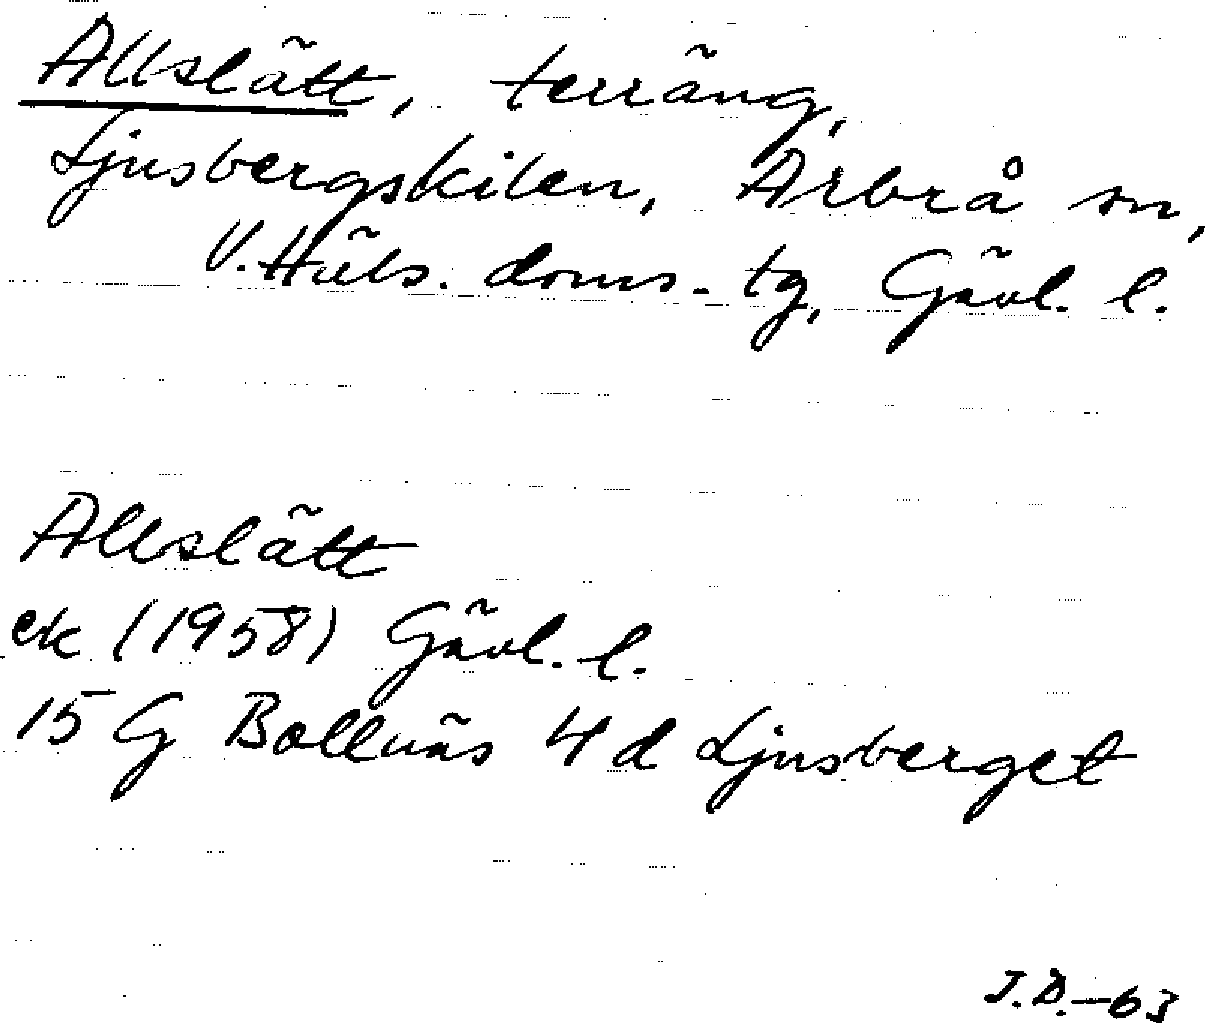 Allslätt, terräng,
Ljusbergskilen, Arbrå sn,
V. Häls. doms.-tg, Gävl. l.
Allslätt
ek (1958) Gävl. l.
15 G Bollnäs 4 d Ljusberget
J.D.-63